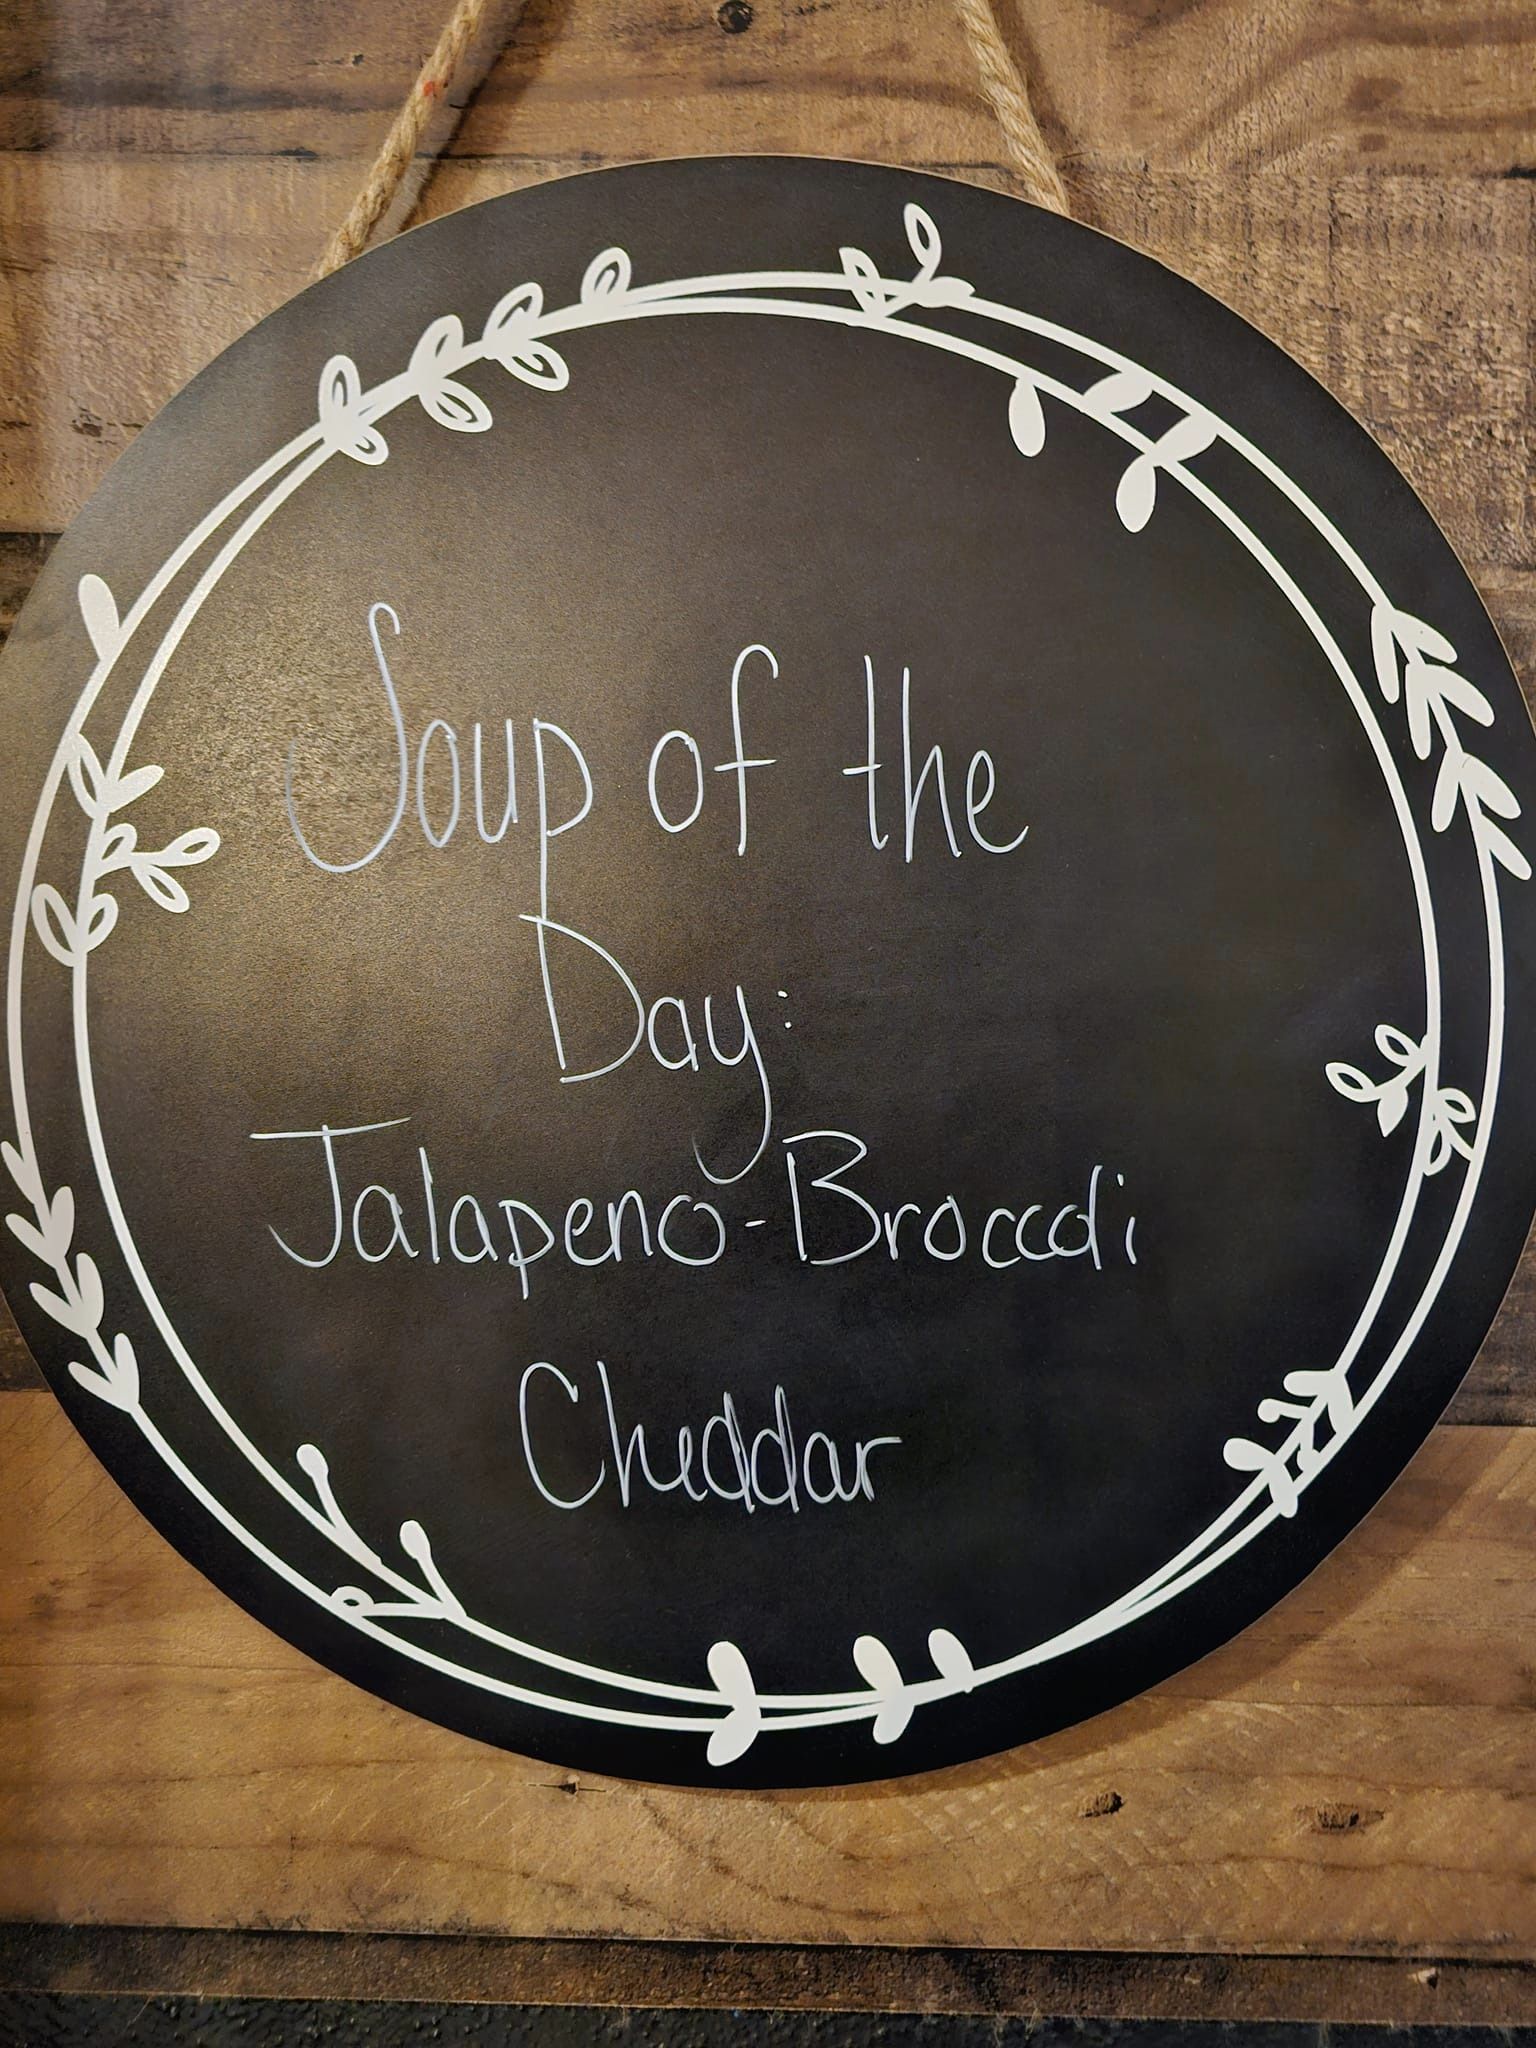 Soup of the
Day:
Jalapeno-Broccoli
Cheddar